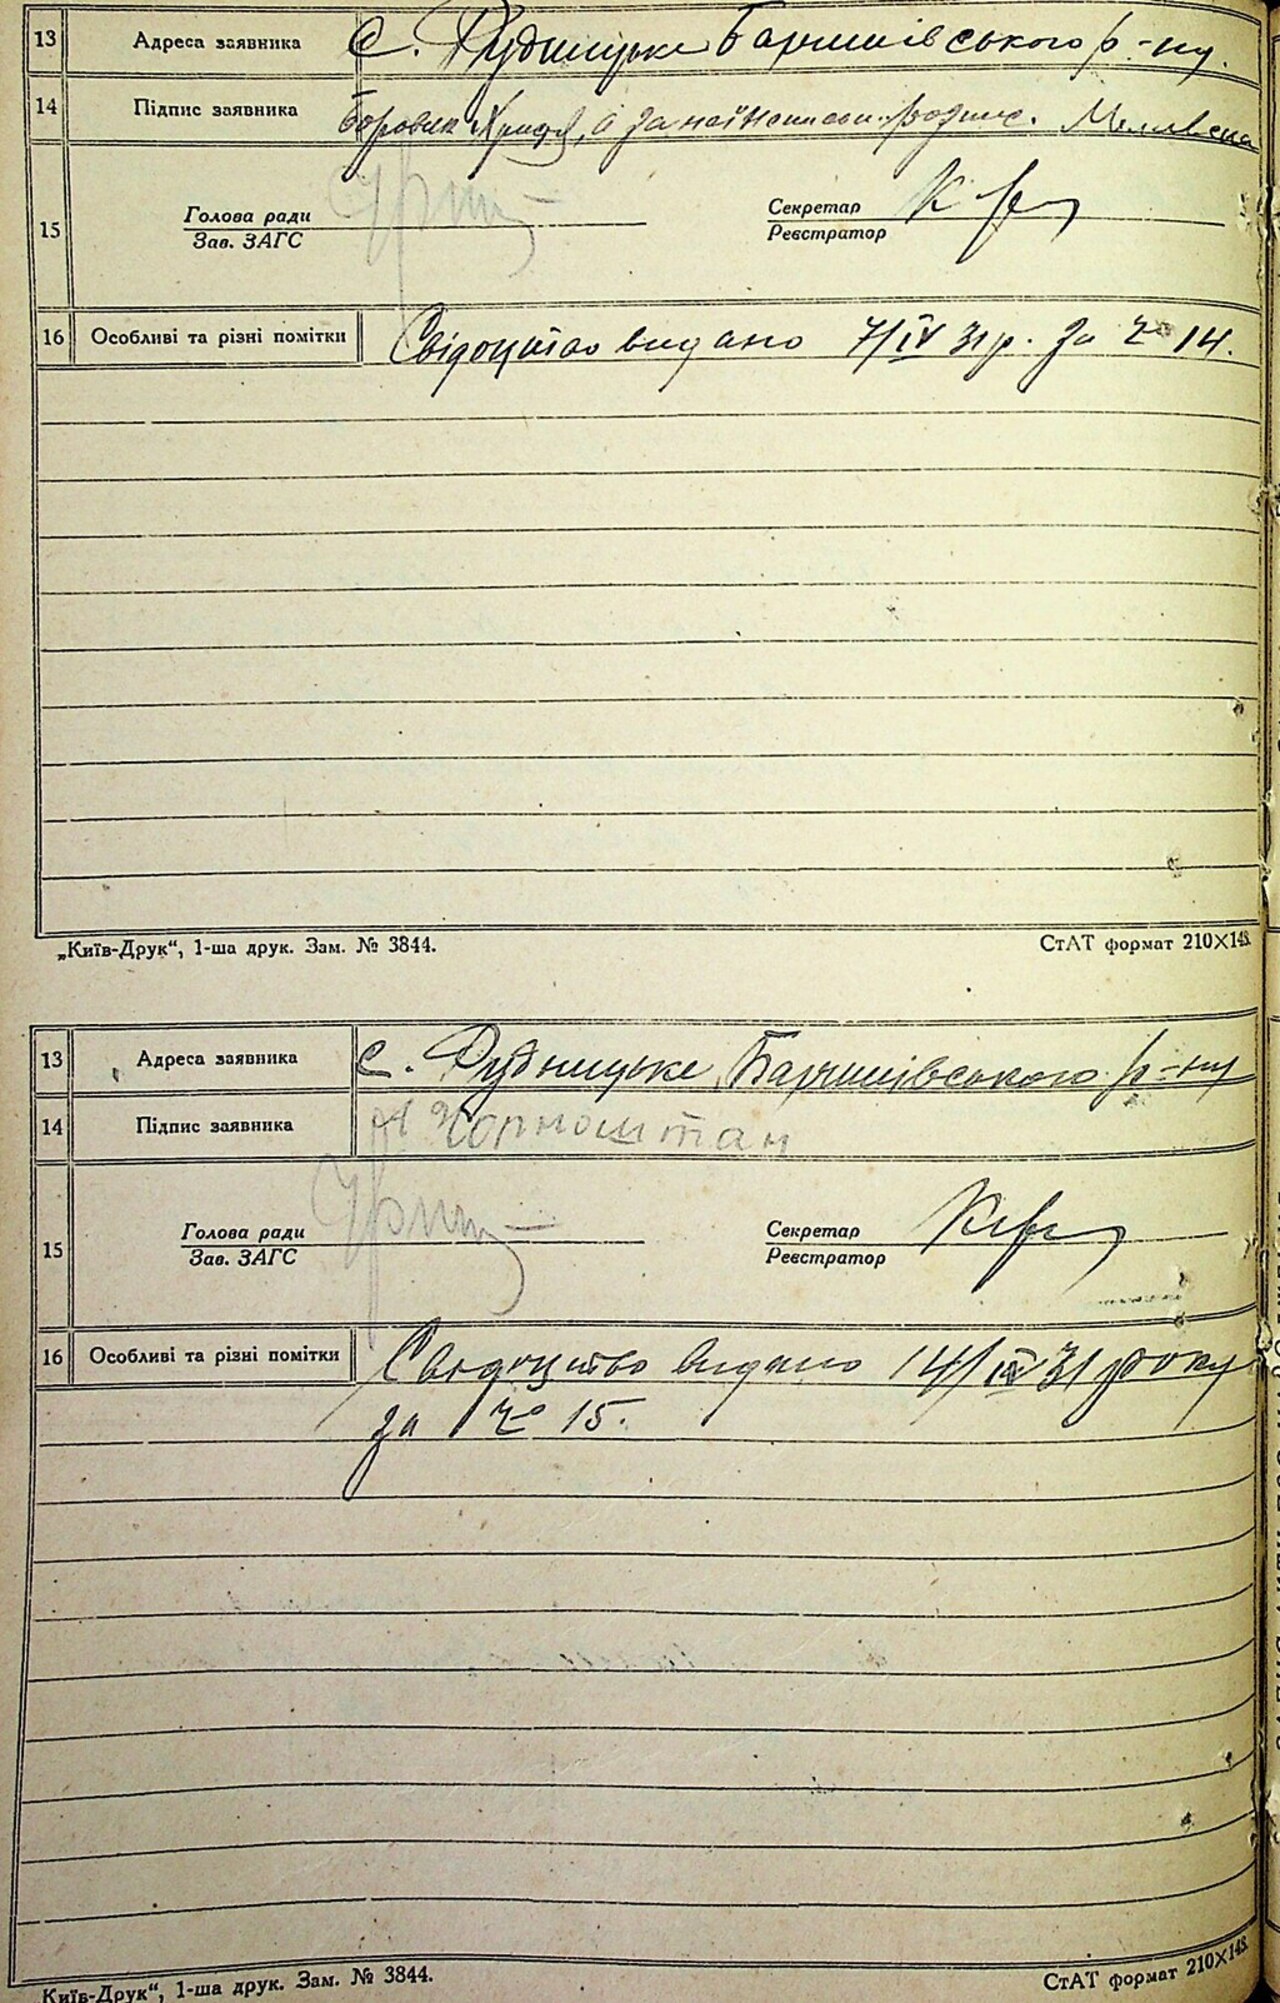 13 Адреса заявника с. Рудницьке Баришівського р-ну.
14 Підпис заявника Боровик Христя, а за неї неписьм. розпис.
Голова ради Секретар
15
Зав. ЗАГС Реєстратор
16 Особливі та різні помітки Свідоцтво видано 7/IV 31 р. за № 14.
„Київ-Друк“, 1-ша друк. Зам. № 3844. СтАТ формат 210×148.
13 Адреса заявника с. Рудницьке Баришівського р-ну
14 Підпис заявника А Чорноштан
Голова ради Секретар
15
Зав. ЗАГС Реєстратор
16 Особливі та різні помітки Свідоцтво видано 14/IV 31 року
за № 15.
Київ-Друк“, 1-ша друк. Зам. № 3844. СтАТ формат 210×148.